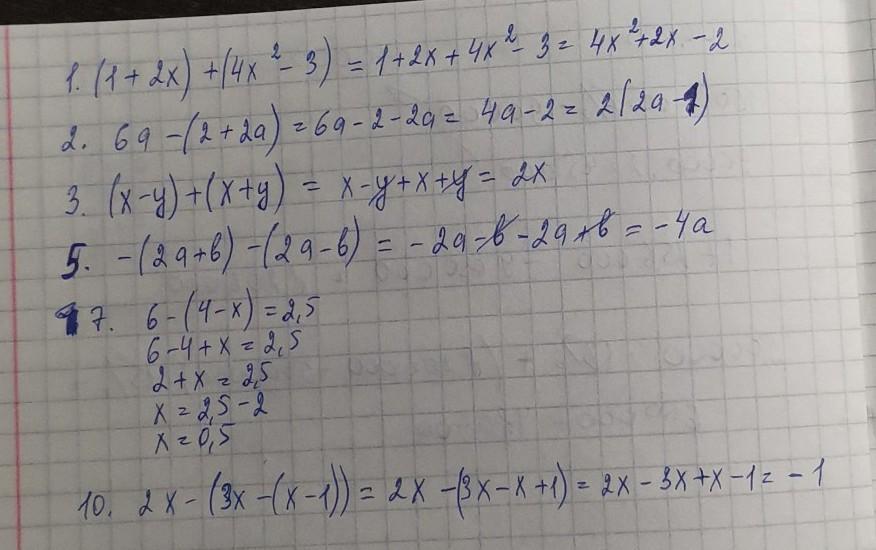 1. (1 + 2x) + (4x² - 3) = 1 + 2x + 4x² - 3 = 4x² + 2x - 2
2. 6a - (2 + 2a) = 6a - 2 - 2a = 4a - 2 = 2(2a - 1)
3. (x - y) + (x + y) = x - y + x + y = 2x
5. -(2a + b) - (2a - b) = -2a - b - 2a + b = -4a
7. 6 - (4 - x) = 2,5
6 - 4 + x = 2,5
2 + x = 2,5
x = 2,5 - 2
x = 0,5
10. 2x - (3x - (x - 1)) = 2x - (3x - x + 1) = 2x - 3x + x - 1 = -1